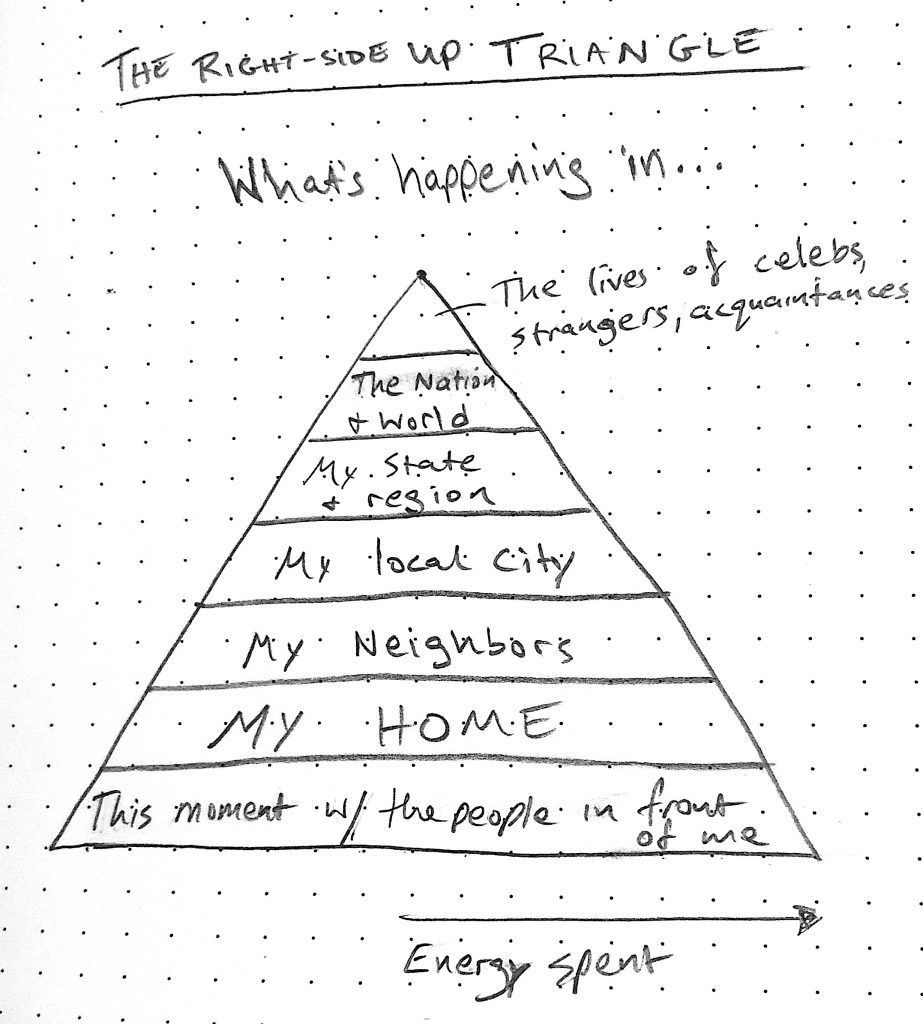 THE RIGHT-SIDE UP TRIANGLE
What's happening in...
The lives of celebs,
strangers, acquaintances
The Nation
& World
My State
& region
My local city
My Neighbors
MY HOME
This moment w/ the people in front
of me
Energy spent